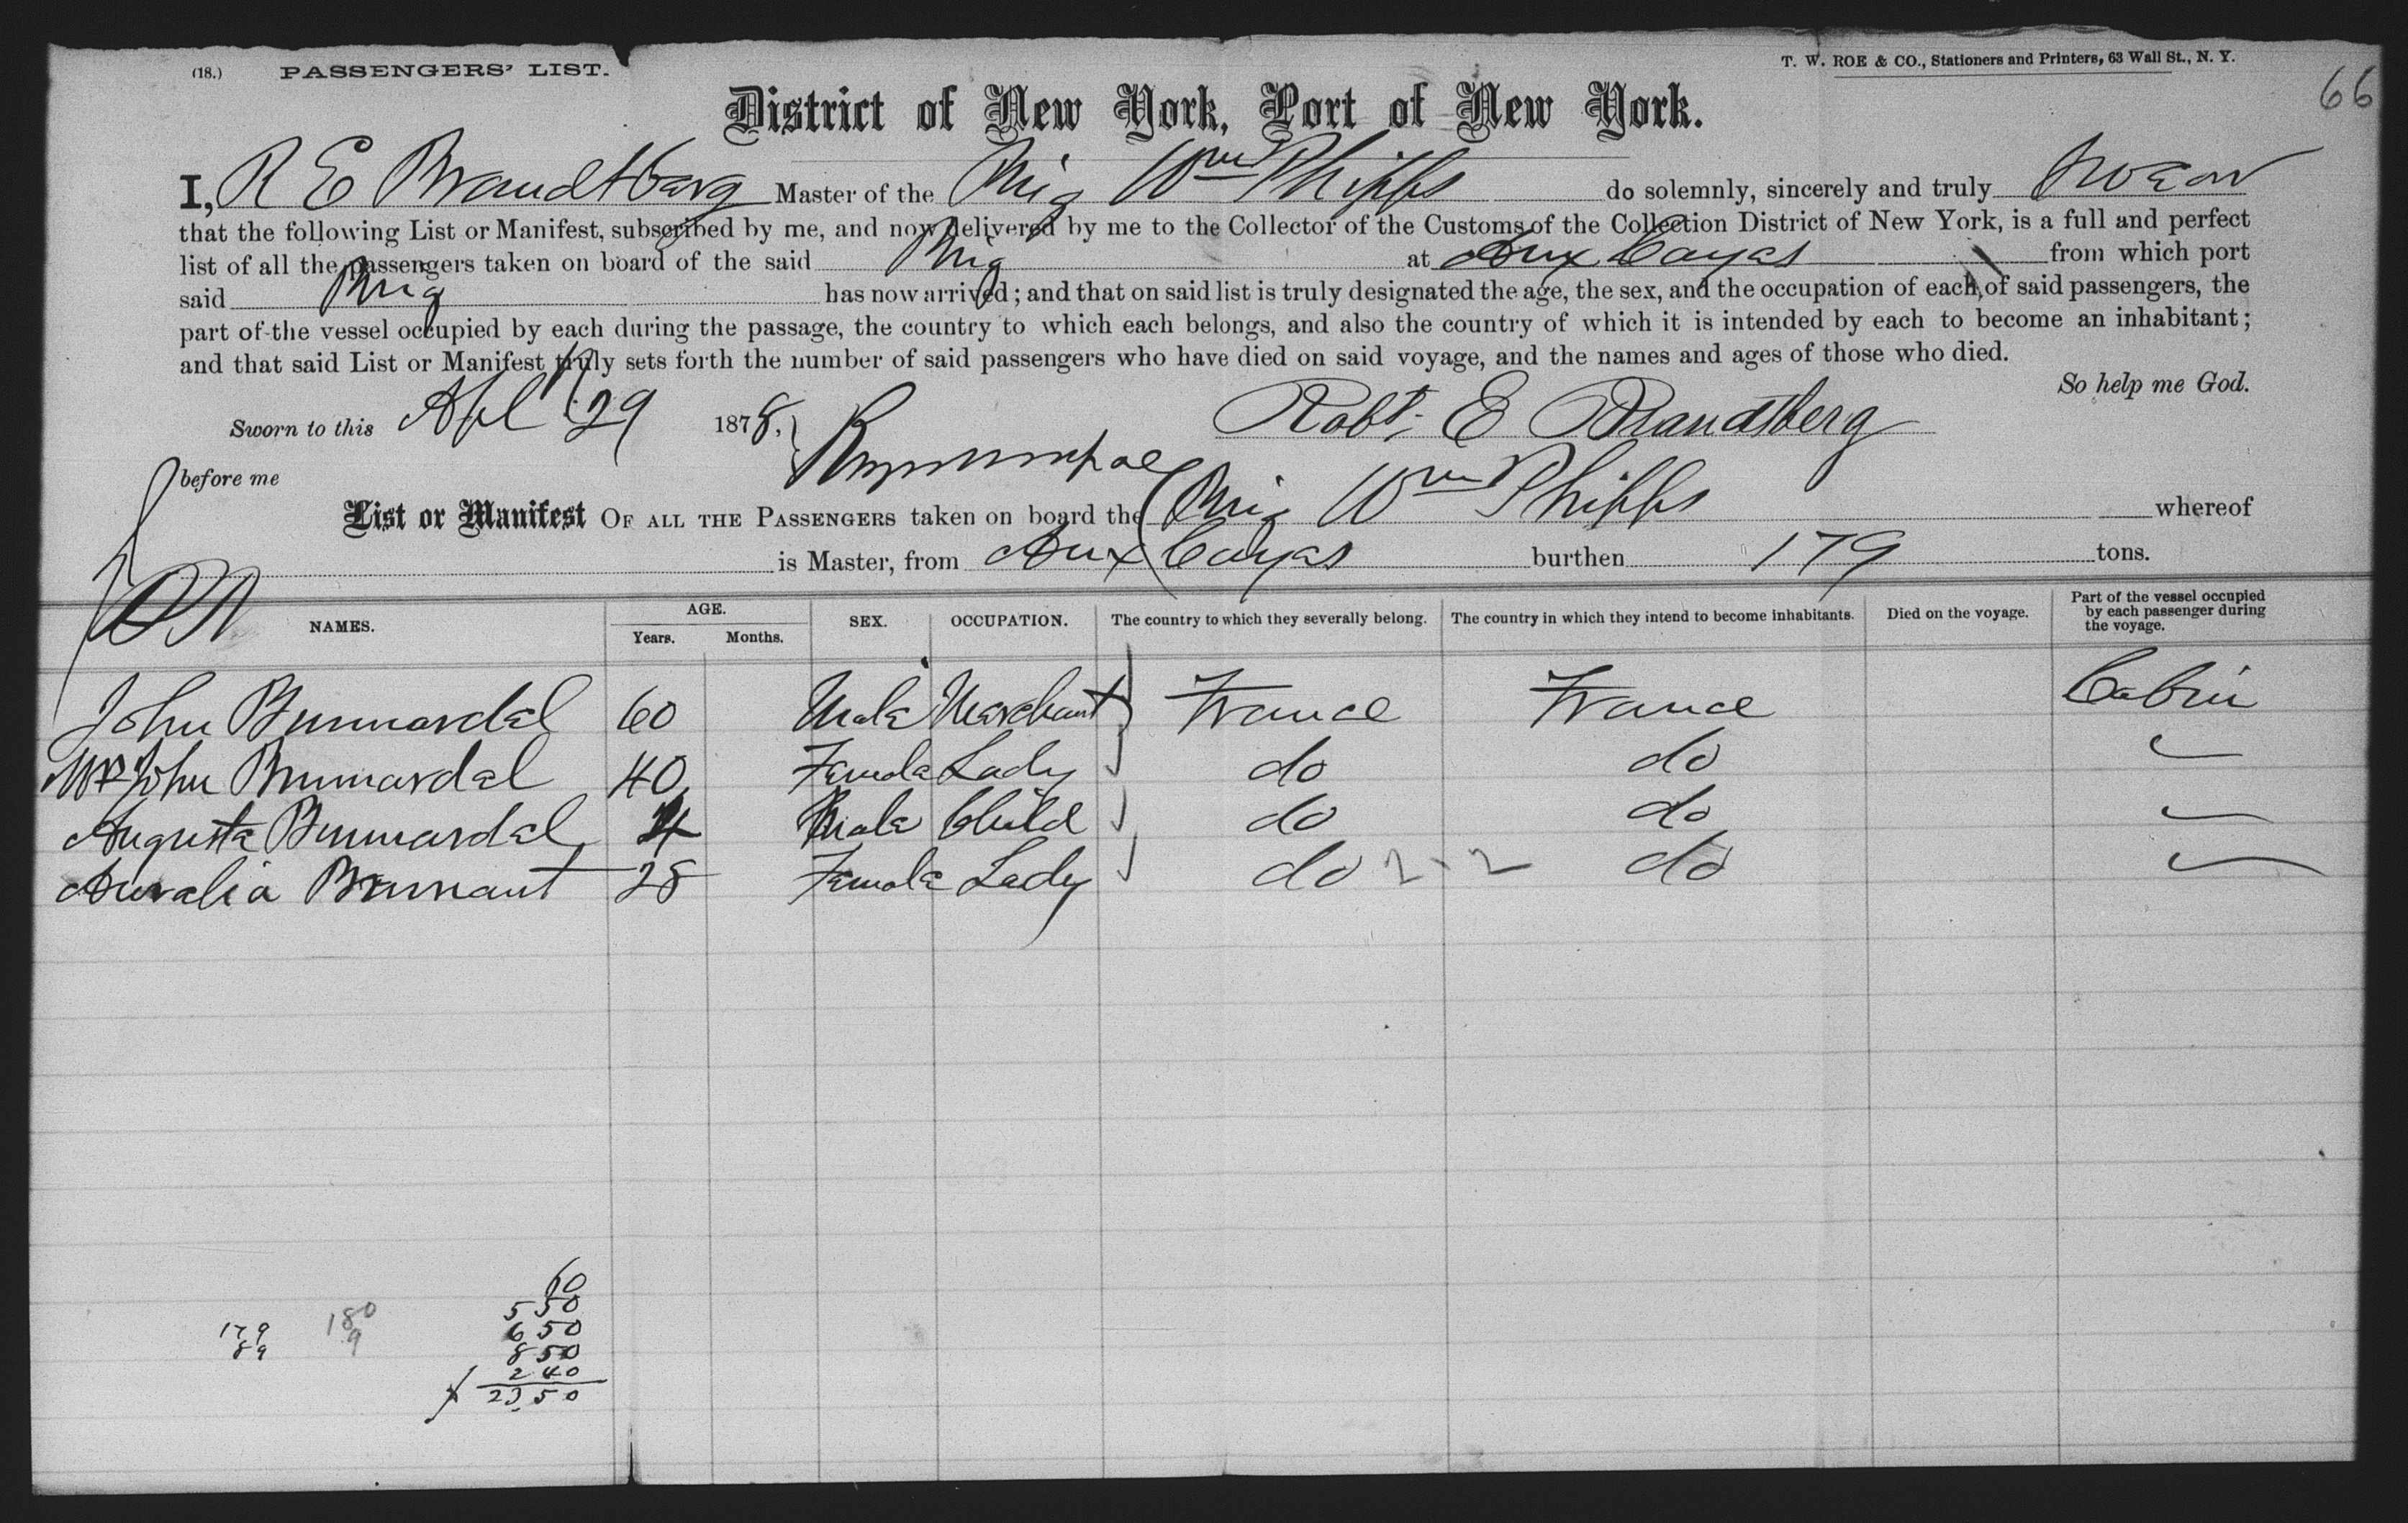 (18.) PASSENGERS' LIST.
T. W. ROE & CO., Stationers and Printers, 63 Wall St., N. Y.
66
District of New York, Port of New York.
I, R E Brandtberg Master of the Brig Wm Phipps do solemnly, sincerely and truly swear
that the following List or Manifest, subscribed by me, and now delivered by me to the Collector of the Customs of the Collection District of New York, is a full and perfect
list of all the passengers taken on board of the said Brig at Aux Cayas from which port
said Brig has now arrived; and that on said list is truly designated the age, the sex, and the occupation of each of said passengers, the
part of the vessel occupied by each during the passage, the country to which each belongs, and also the country of which it is intended by each to become an inhabitant;
and that said List or Manifest truly sets forth the number of said passengers who have died on said voyage, and the names and ages of those who died.
So help me God.
Sworn to this Apl 29 1878, Robt. E Brandtberg
before me
List or Manifest OF ALL THE PASSENGERS taken on board the Brig Wm Phipps whereof
is Master, from Aux Cayas burthen 179 tons.
NAMES. AGE. Years. Months. SEX. OCCUPATION. The country to which they severally belong. The country in which they intend to become inhabitants. Died on the voyage. Part of the vessel occupied by each passenger during the voyage.
John 60 Male Merchant France France Cabin
John 40 Female Lady do do
Augusta 4 Male Child do do
28 Female Lady do 2 2 do
60
550
179 180 650
89 9 850
240
2350